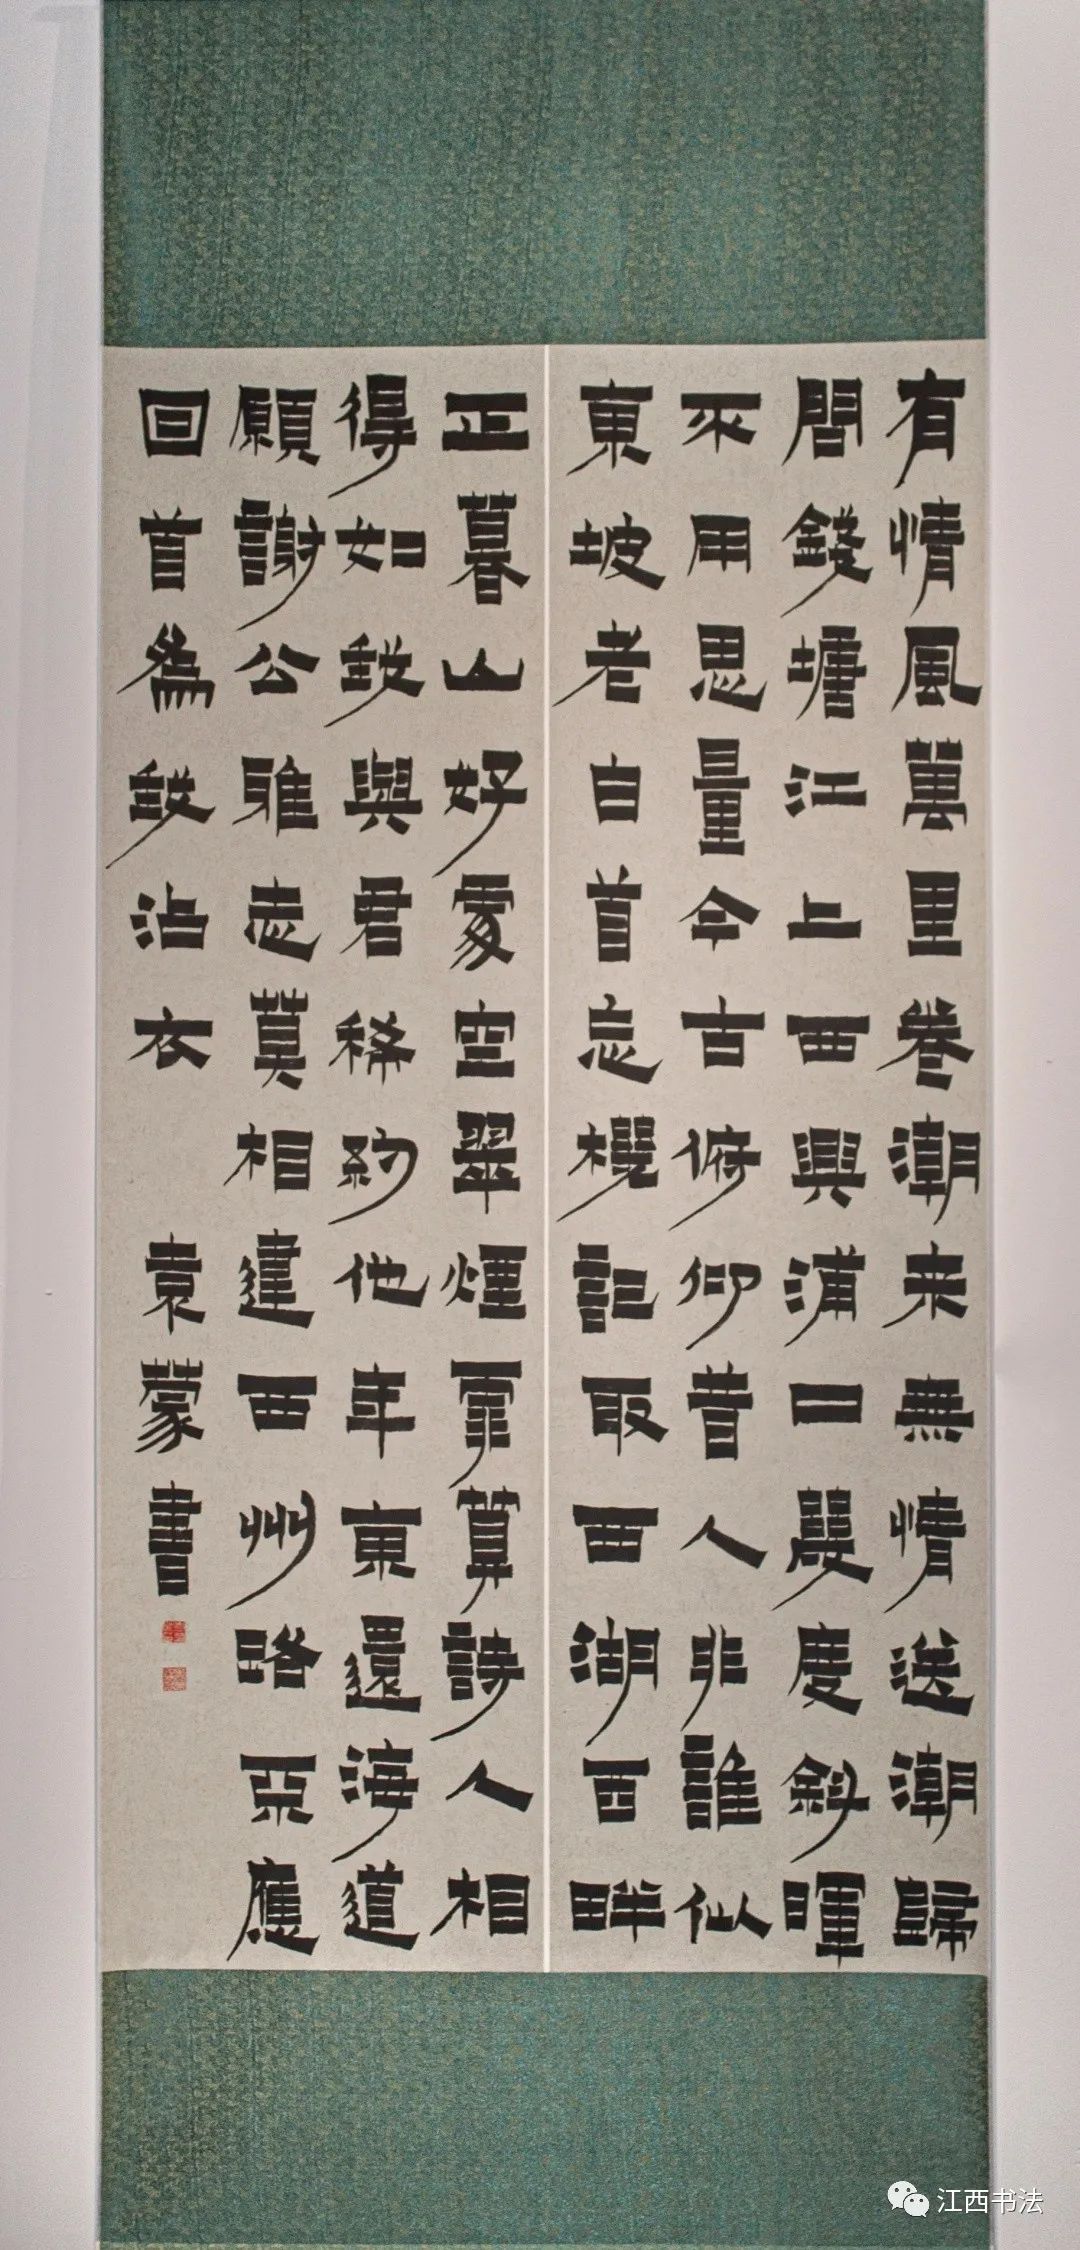 有情風萬里卷潮来無情送潮歸
問錢塘江上西興浦口幾度斜暉
不用思量今古俯仰昔人非誰似
東坡老白首忘機記取西湖西畔
正暮山好處空翠煙霏算詩人相
得如我與君稀約他年東還海道
願謝公雅志莫相違西州路不應
回首為我沾衣 袁蒙書
江西书法